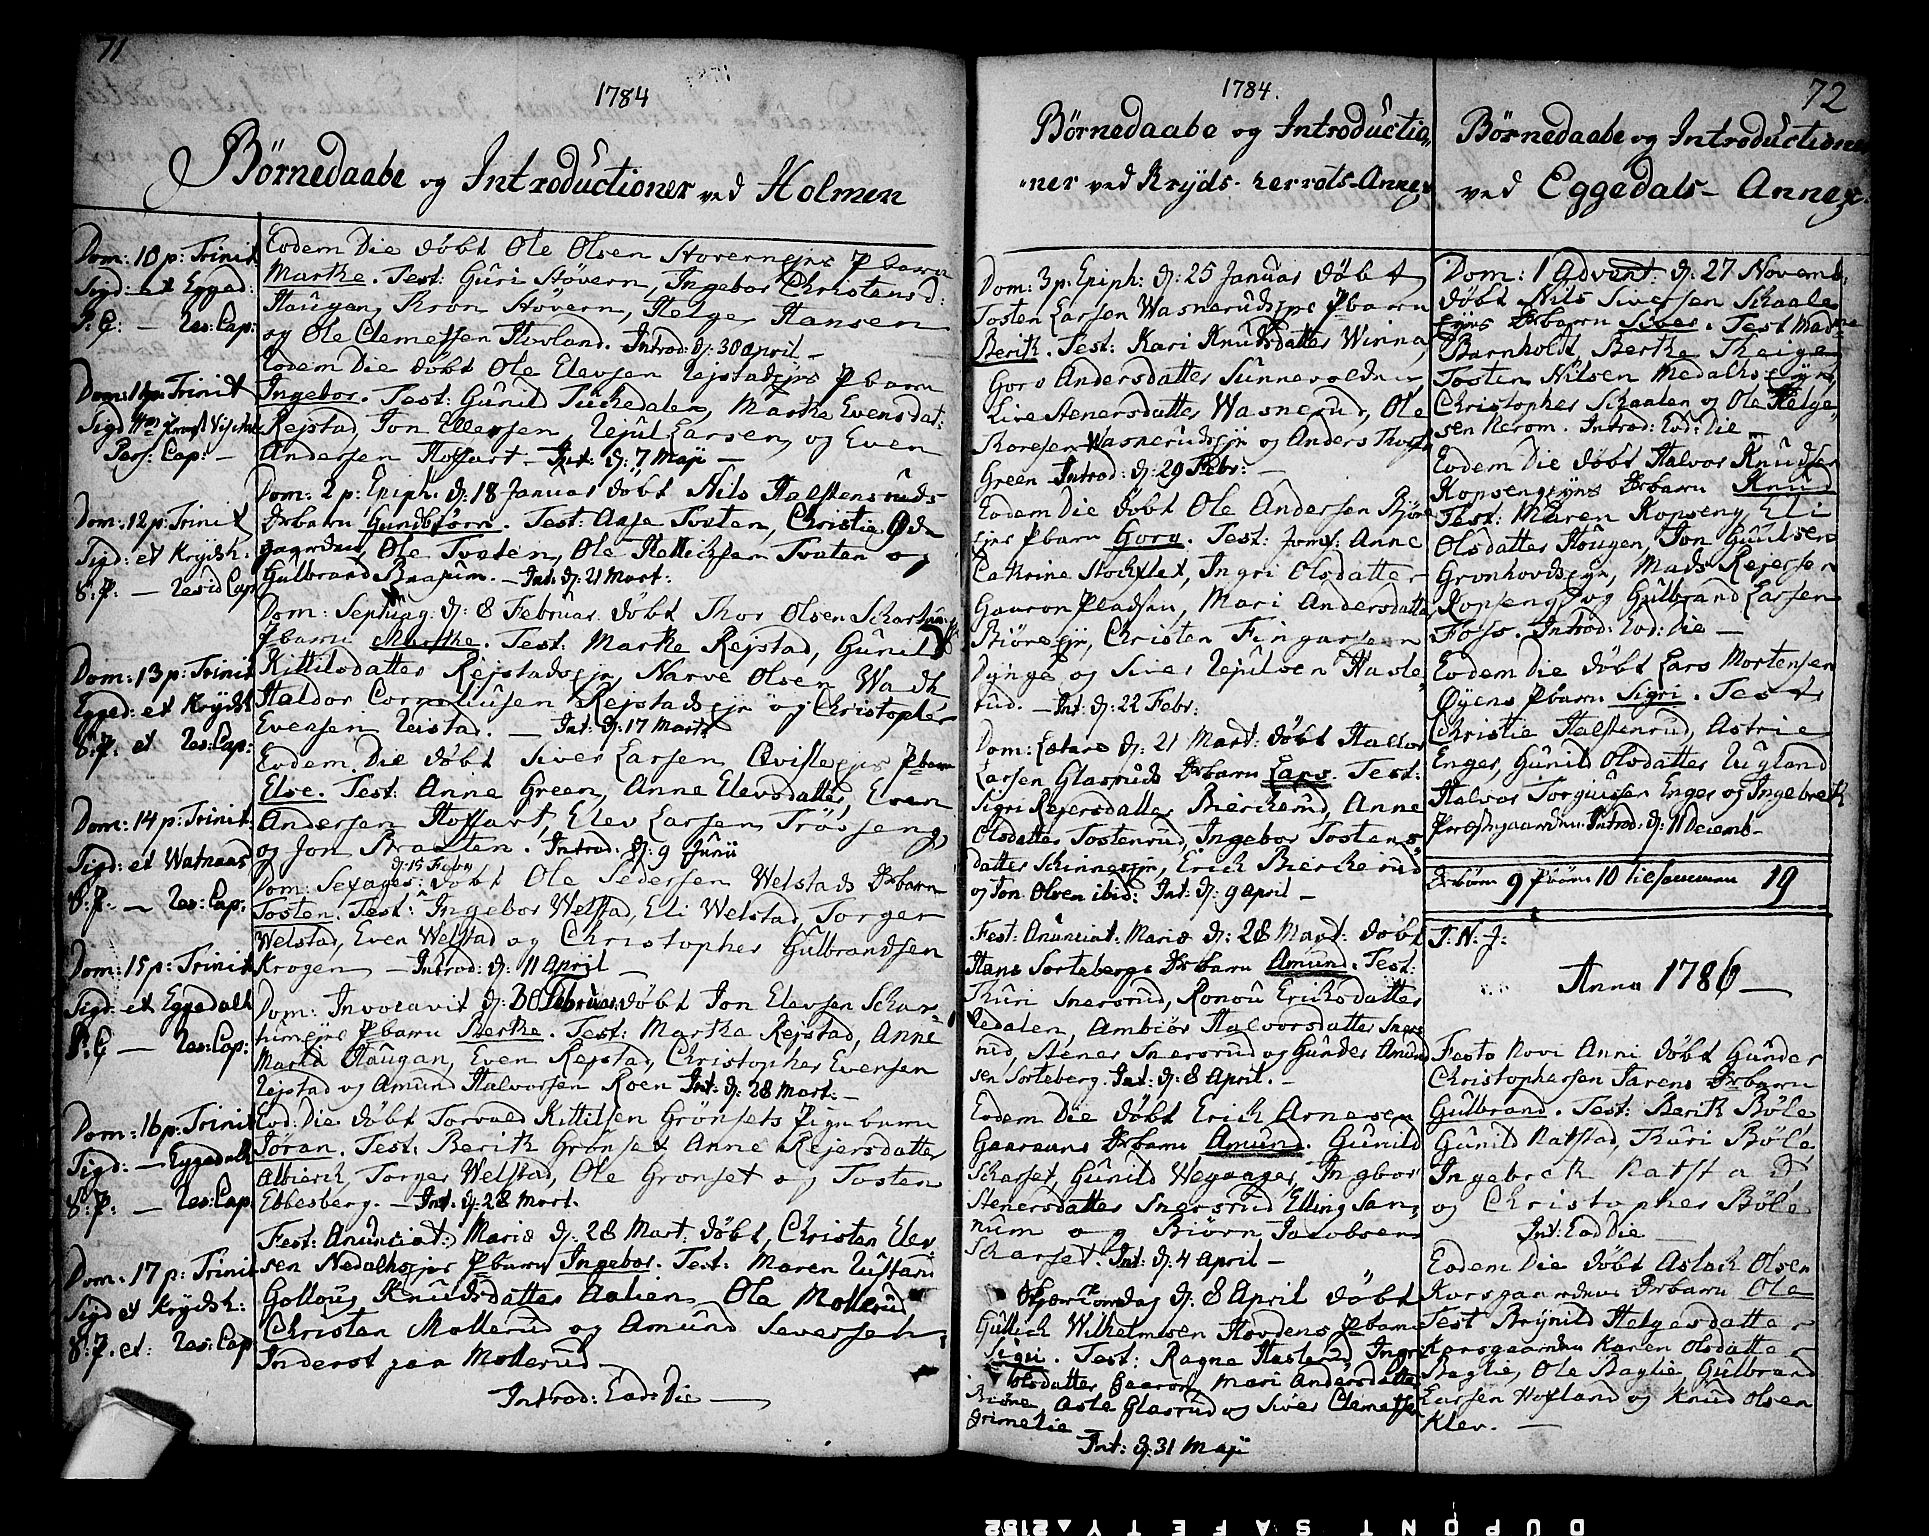 71
1784
Børnedaabe og Introductioner ved Holmen
Dom: 10 p: Trinit
Sigd: et Egged:
Res: Cap:
Dom: 11 p: Trinit
Sigd
Pers: Cap: —
Dom: 12 p: Trinit
Sigd: et Krydsh:
S: P: — Resid Cap
Dom: 13 p: Trinit
Egged: et Krydsh
S: P: et Res: Cap:
Dom: 14 p: Trinit.
Sigd: et Watnaas
S: P: — Res: Cap:
Dom: 15 p: Trinit
Sigd: et Eggedahl
Res: Cap:
Dom: 16 p: Trinit
Sigd: — Eggedahl
S: P: — Res: Cap
Dom: 17 p: Trinit
Sigd et Krydsh:
S: P. et: Res: Cap
Eodem Die døbt Ole Olsen Hovernejes P barn
Marthe. Test: Guri Høvern, Ingebor Christensd:
Haugen, Kron Høvern, Helge Hansen
og Ole Clemetsen Hovland. Introd: d: 30 april —
Eodem Die døbt Ole Elevsen Rejstadejes P barn
Ingebor. Test: Gunild Tuchedalen, Marthe Evensdat:
Rejstad, Jon Ellevsen, Rejul Larsen, og Even
Andersen Hoffart — Int: d: 7 Maji —
Dom: 2 p: Epiph. d: 18 Januar døbt Nils Halstensruds
Drbarn Gundbjørn. Test: Aase Tveten, Christie Øde
gaarden, Ole Tveten, Ole Hellichsen Tveten og
Gulbrand Braasum. — Int: d: 21 Mart:
Dom: Septuag: d: 8 Februar døbt Thor Olsen
Pbarn Marthe. Test: Marthe Rejstad, Gunild
Kittilsdatter Rejstadejr, Narve Olsen
Haldor Corneliusen Rejstadejr og Christopher
Evensen Reistad. — Int: d: 17 Marti
Eodem Die døbt Siver Larsen Qvisleejes Pbarn
Else. Test: Anne Green, Anne Elevsdatter, Even
Andersen Hoffart, Elev Larsen Trosseng,
og Jon Braaten. Introd: d: 9 Junii
Dom: Sexages: d: 15 Febru døbt Ole Pedersen Welstads Drbarn
Tosten. Test: Ingebor Welstad, Eli Welstad, Torger
Welstad, Even Welstad og Christopher Gulbrandsen
Krogen — Introd: d: 11 April —
Dom: Invocavit d: Februar døbt Jon Elevsen Schar-
humejes Pbarn Berthe. Test: Marthe Rejstad, Anne
Martha Haugan, Even Rejstad, Christopher Evensen
Rejstad og Amund Halvorsen Roen Int: d: 28 Mart: —
Eod: Die døbt Torvald Kittilsen Grønsets Pigebarn
Jøran. Test: Berith Grønset Anne Rejersdatter
Albierk, Torger Welstad, Ole Gronset og Tosten
Ebbesberg. — Int: d: 28 Mart.
Fest: Anunciat: Mariæ d: 28 Mart: døbt, Christen Elev:
sen Nedalhsejes Pbarn Ingebor. Test: Maren Rustan
Gollous Knudsdatter Aalien, Ole Mollerud
Christen Mollerud og Amund Seversen
Inderst paa Mollerud —
Introd: Eade Die —
1784.
Børnedaabe og Introductio,
ner ved Kryds-herrets-Annex
Dom: 3 p: Epiph: d: 25 Januar døbt
Tosten Larsen Wasnerudsejes Pbarn
Berith. Test: Kari Knudsdatter Winna,
Goro Andersdatter Sunnevolden —
Live Stenersdatter Wasnerud, Ole
Thoresen Wasnerudsejr og Anders
Green Introd: d: 29 Febr: —
Eodem Die døbt Ole Andersen Bjøre
ejes Pbarn Goro. Test: Jomf: Anne
Cathrine Stochflet, Ingri Olsdatter
Gaaron Pladsen, Mari Andersdatter
Biøreejr, Christen Fingarsen
Dynge og Siver Rejulsen Hasle,
rud. — Int: d: 22 Febr:
Dom: Lætare d: 21 Mart: døbt Halvor
Larsen Glasruds Drbarn Lars. Test:
Sigri Rejersdatter Bierkerud, Anne
Olsdatter Tostenrud, Ingebor Tostens
datter Schinnesejr, Erich Bierkerud
og Jon Olsen ibid: Int: d: 9 april —
Fest: Anunciat: Mariæ d: 28 Mart: døbt
Hans Sortebergs Drbarn Amund. Test:
Thuri Snersrud, Ronou Erichsdatter
Redalen, Ambiør Halvorsdatter Sners
rud, Stener Snersrud og Gunder Amund
sen Sorteberg. Int: d: 8 April. —
Eodem Die døbt Erich Arnesen
Gaarauns Drbarn Amund. Gunild
Scharset, Gunild Wegaager, Ingbor
Stenersdatter Snersrud Elling San,
num og Biørn Jacobsen
Scharset. Int: d: 4 April —
Skjær Torsdag d: 8 April døbt
Gullich Wilhelmsen Hovdens Pbarn
Sigri. Test: Ragne Haslerud, Ingri
Olsdatter Gaaron, Mari Andersdatter
Biøre, Asle Glasrud og Siver Clemetsen
Grimelie
Int: d: 31 Maji
72
Børnedaabe og Introductioner
ved Eggedals- Annex.
Dom: 1 Advent: d: 27 Novemb:
døbt Nils Siversen Schaale
Drbarn Siver. Test Madme
Barnholdt, Berthe Theige
Tosten Nilsen Medalhsejr,
Christopher Schaalen og Ole Helge,
sen Nerom. Introd: Eod: Die —
Eodem Die døbt Halvor Knudsen
Kopsengejens Drbarn Knud
Test: Maren Kopseng, Eli
Olsdatter Hougen, Jon Guulsen
Gronhovdsejr, Mads Rejersen
Kopseng og Gulbrand Larsen
Foss. Introd: Eod: Die —
Eodem Die døbt Lars Mortensen
Øyens Pbarn Sigri. Test
Christie Halstenrud, Astrie
Enger, Gunild Olsdatter Rugland
Halvor Torgiusen Enger og Ingebreth
Præstegaarden. Introd: d: 11 Decemb —
Drbørn 9 Pbørn 10 tilsammen 19
I: N: J:
Anno 1786 —
Festo Novi Anni døbt Gunder
Christophersen Tarens Drbarn
Gulbrand. Test: Berith Bøle
Gunild Ratstad, Thuri Bøle
Ingebreth Natstad
og Christopher Bøle
Int: Ead Die —
Eodem Die døbt Aslach Olsen
Korsgaardens Drbarn Ole
Test Brynild Helgesdatter
Korsgaarden Karen Olsdatter
Baglie, Ole Baglie, Gulbrand
Larsen Hofland og Knud Olsen
Klev. —
2152 DUPONT SAFETY